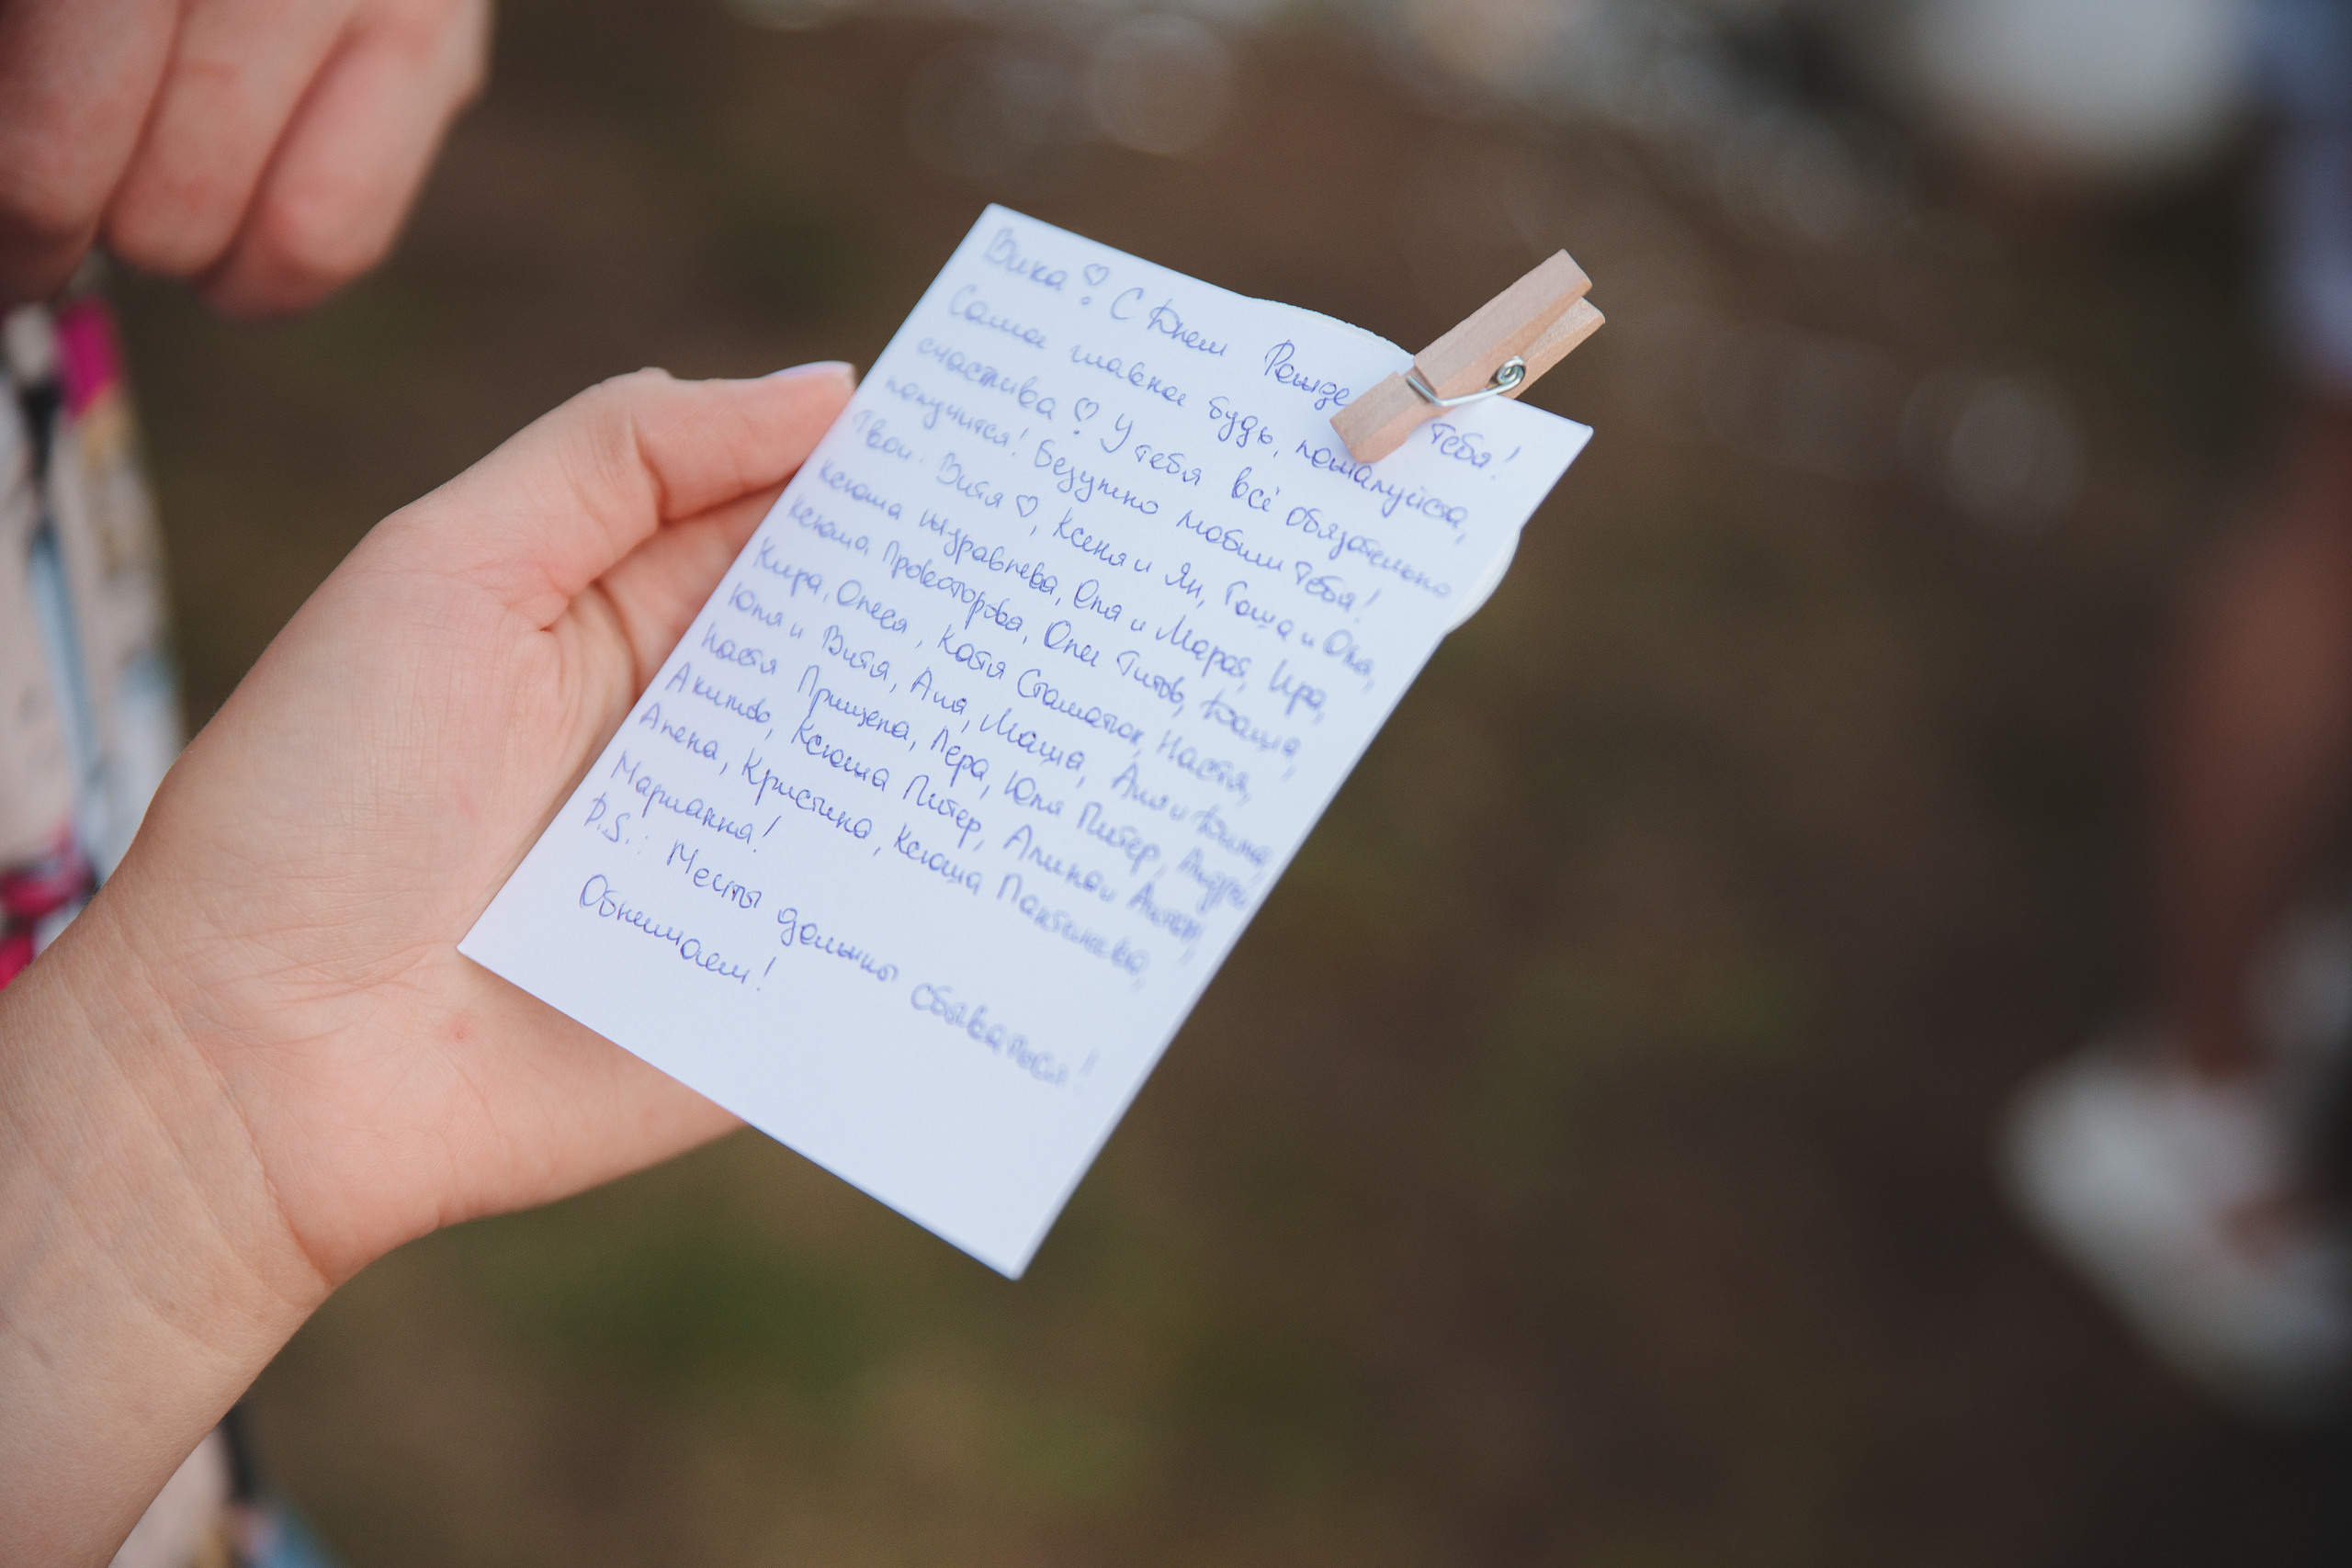 Вика! С Днем Рожде Тебя!
Самое главное будь, пожалуйста,
счастлива! У тебя всё обязательно
получится! Безумно любим тебя!
Твои: Витя, Ксеня и Ян, Гоша и Оля,
Ксюша Оля и Марат, Ира,
Ксюша Олег Титов, Даша,
Кира, Олеся, Катя Стаматюк, Настя,
Юля и Витя, Аля, Маша, Аля и Дима,
Настя Прищепа, Лера, Юля Питер, Андрей
Акимов, Ксюша Питер, Алина и Антон,
Алена, Кристина, Ксюша Пантелеева,
Марианна!
P.S.: Мечты должны сбываться!
Обнимаем!